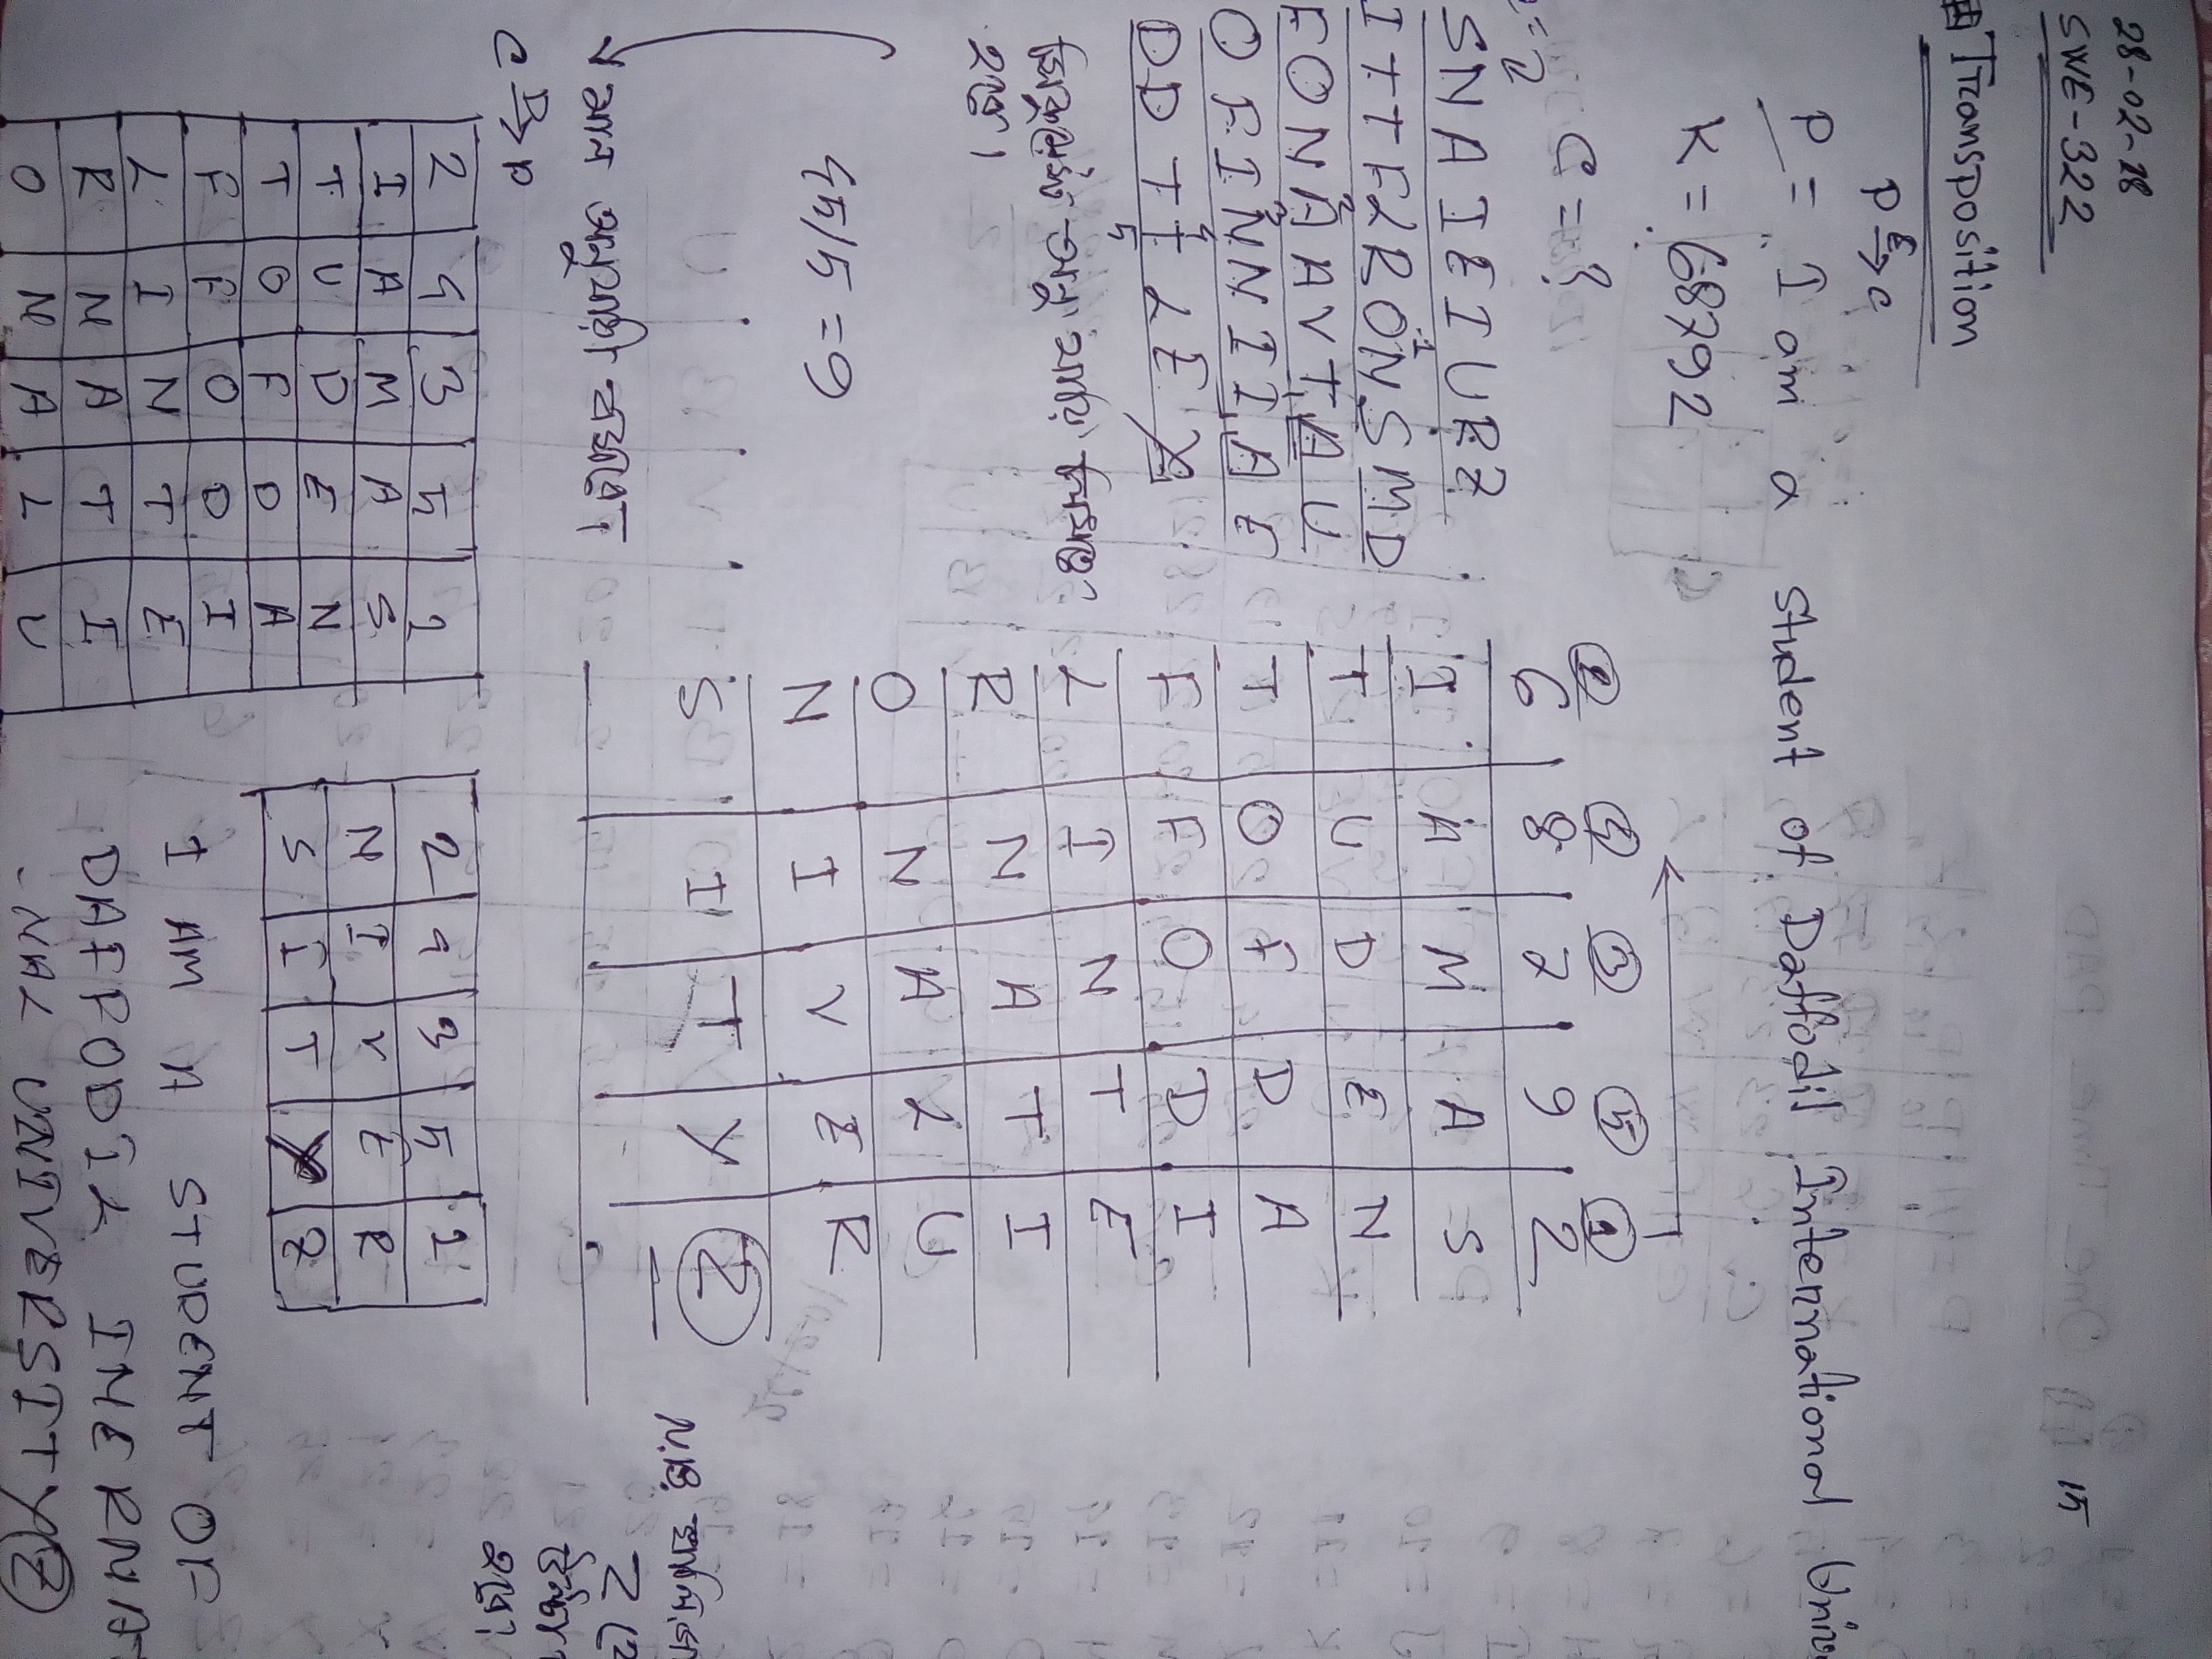 28-02-18
SWE-322
15
Transposition
P E→ C
P = I am a student of Daffodil International
K = 68792
C = ?
SNAIEIURZ
1
ITTFLRONSMD
2
FONAAVTAU
3
OFINNIIAE
4
DDTTLEY
5
2 4 3 5 1
6 8 7 9 2
I A M A S
T U D E N
T O F D A
F F O D I
L I N T E
R N A T I
O N A L U
N I V E R
S I T Y Z
অনুযায়ি লিখতে
হবে।
45/5 = 9
মান অনুযায়ী বসবে।
N.B. খালি
Z
হবে।
C D→ P
2 4 3 5 1
I A M A S
T U D E N
T O F D A
F F O D I
L I N T E
R N A T I
O N A L U
2 4 3 5 1
N I V E R
S I T Y Z
I AM A STUDENT OF
DAFFODIL INERNAT
-NAL UNIVERSITY Z